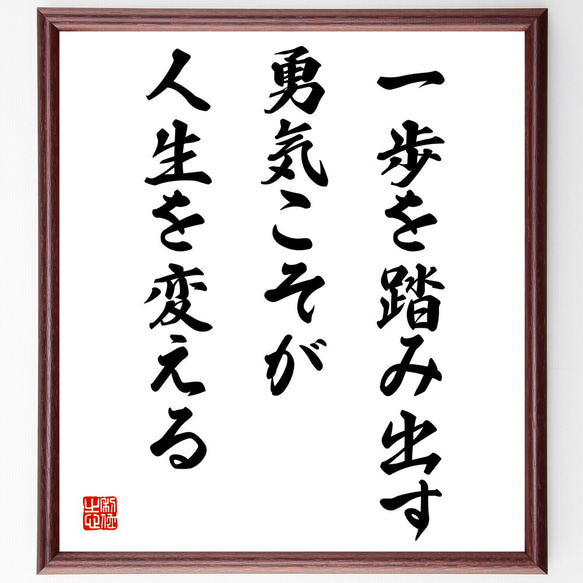 一歩を踏み出す
勇気こそが
人生を変える